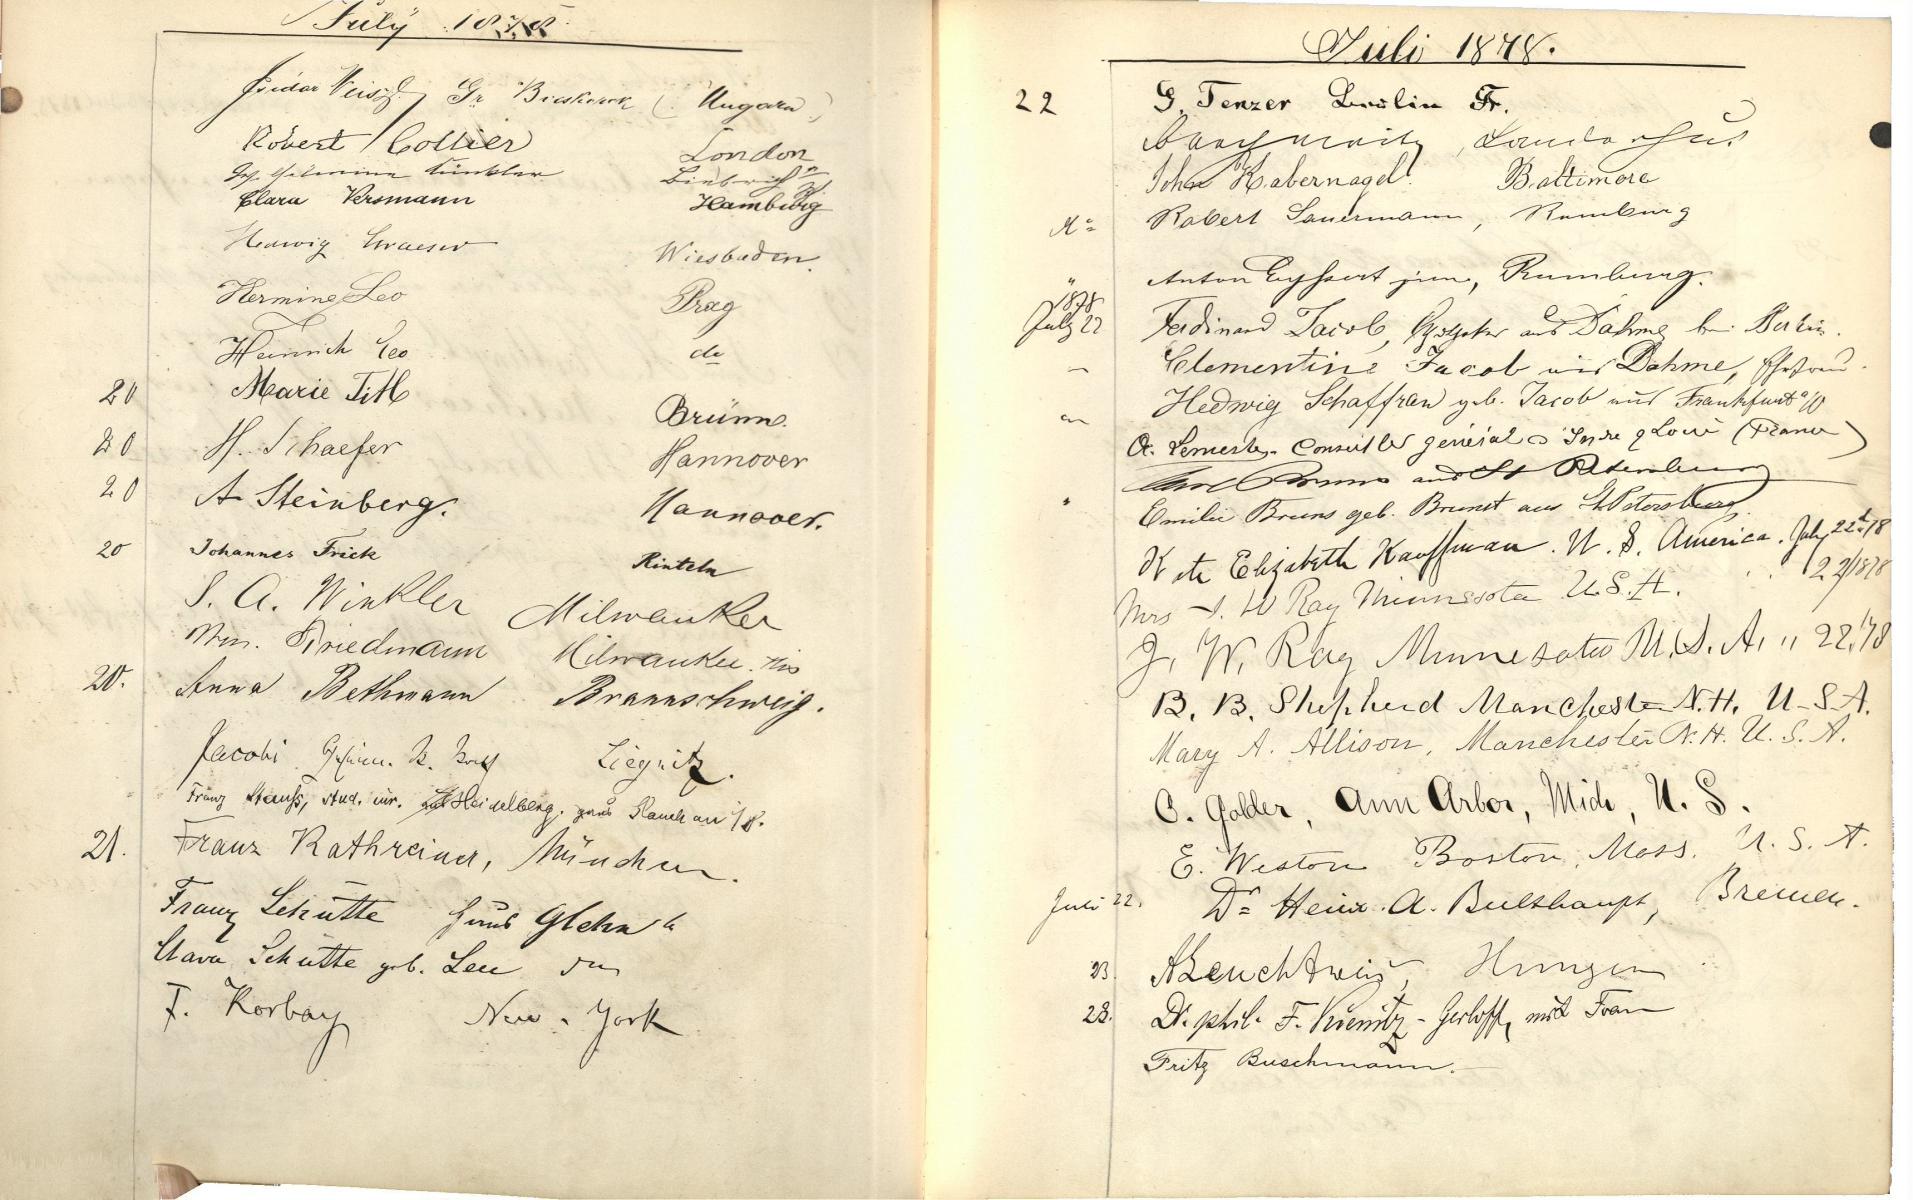 July 1878
Isidor Weiss Gr Becskerek (Ungarn)
Robert Collier London
Clara Versmann Hamburg
Hedwig Graeser Wiesbaden.
Hermine Leo Prag
Heinrich Leo do
20 Marie Titl Brünn.
20 H. Schaefer Hannover
20 A Steinberg. Hannover.
20 Johannes Frick Rinteln
S. A. Winkler Milwaukee
Wm. Friedmann Milwaukee Wis
20. Anna Bethmann Braunschweig.
Jacobi Liegnitz.
Franz Stauss, stud. iur. Heidelberg.
21. Franz Kathreiner, München.
Franz Schütte
Clara Schütte geb. Leu
F. Korbay New-York
Juli 1878.
22 G. Tenzer Berlin Fr.
John Habernagel. Baltimore
Robert Sauermann, Rumburg
" Anton Eyssert jun, Rumburg.
1878
July 22 Ferdinand Jacob, aus Dahme bei Berlin.
Clementine Jacob aus Dahme, Ehefrau.
Hedwig Schaffran geb. Jacob aus Frankfurt a/O
A. Conseiller général Indre & Loire (France)
Bruns aus St Petersburg
" Emilie Bruns geb. Brunst aus St Petersburg.
Kate Elizabeth Kauffman. U. S. America. July 22d 78
Mrs J. W Ray Minnesota U.S.A. 22/1878
J. W. Ray Minnesota U.S.A. " 22.'78
B. B. Shepherd Manchester N.H. U-S.A.
Mary A. Allison, Manchester N.H. U.S.A.
C. Golder, Ann Arbor, Mich, U. S.
E. Weston Boston, Mass. U. S. A.
Juli 22. Dr Heinr. A. Bulthaupt, Bremen.
23. A Leuchtweis, Hungen
23. Dr. phil. F. Kienitz-Gerloff, mit Frau
Fritz Buschmann.